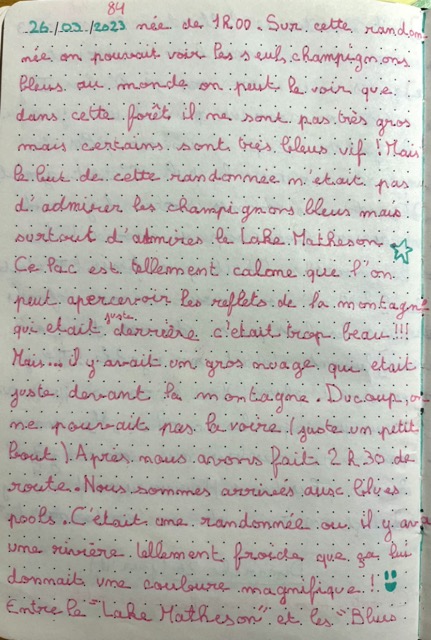 84
26/03/2023 née de 1h00. Sur cette random-
née on pouvait voir les seuls champignons
bleus au monde on peut le voir que
dans cette forêt il ne sont pas très gros
mais certains sont très bleus vif ! Mais
le but de cette randonnee n'était pas
d'admirer les champignons bleus mais
surtout d'admires le Lake Matheson ☆
Ce lac est tellement calme que l'on
peut apercevoir les reflets de la montagne
qui etait juste derrière c'était trop beau !!!
Mais... il y avait un gros nuage qui etait
juste devant la montagne. Ducoup, on
ne pouvait pas la voire (juste un petit
bout). Après nous avons fait 2h30 de
route. Nous sommes arrivées aux blues
pools. C'était une randonnée ou il y ava
une rivière tellement froide que ça lui
donnait une couloure magnifique !!
Entre le "Lake Matheson" et les "Blus